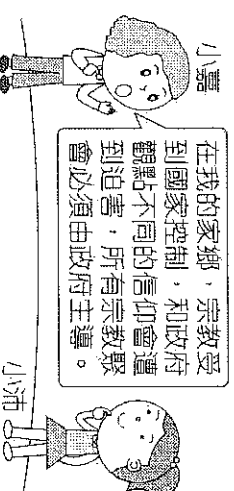 小嘉
在我的家鄉，宗教受
到國家控制，和政府
觀點不同的信仰會遭
到迫害，所有宗教聚
會必須由政府主導。
小沛